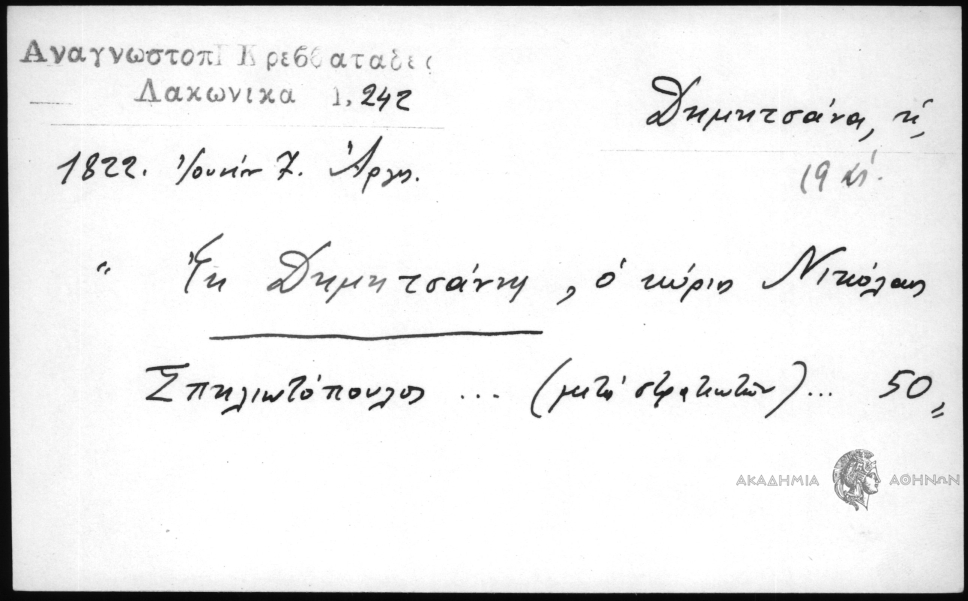 Αναγνωστοπ Κρεββαταδες
Λακωνικα 1, 242
Δημητσάνα, ἡ,
1822. Ἰουνίου 7. Ἄργος.
19 αἰ.
" Ἐκ Δημητσάνης, ὁ κύριος Νικόλαος
Σπηλιωτόπουλος ... (μετὰ στρατιωτῶν) ... 50"
ΑΚΑΔΗΜΙΑ ΑΘΗΝΩΝ